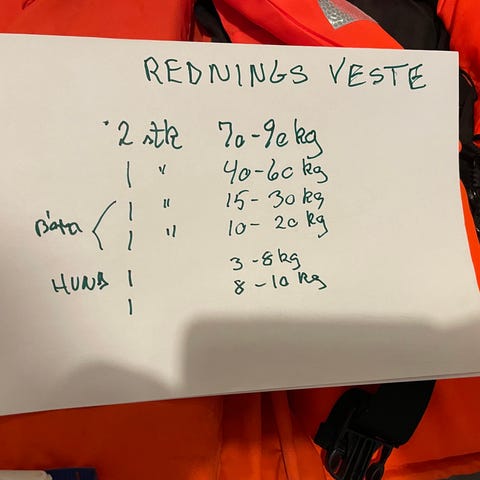 REDNINGS VESTE
2 stk 70-90 kg
1 " 40-60 kg
1 " 15-30 kg
1 " 10-20 kg
1 3-8 kg
HUND 1 8-10 kg